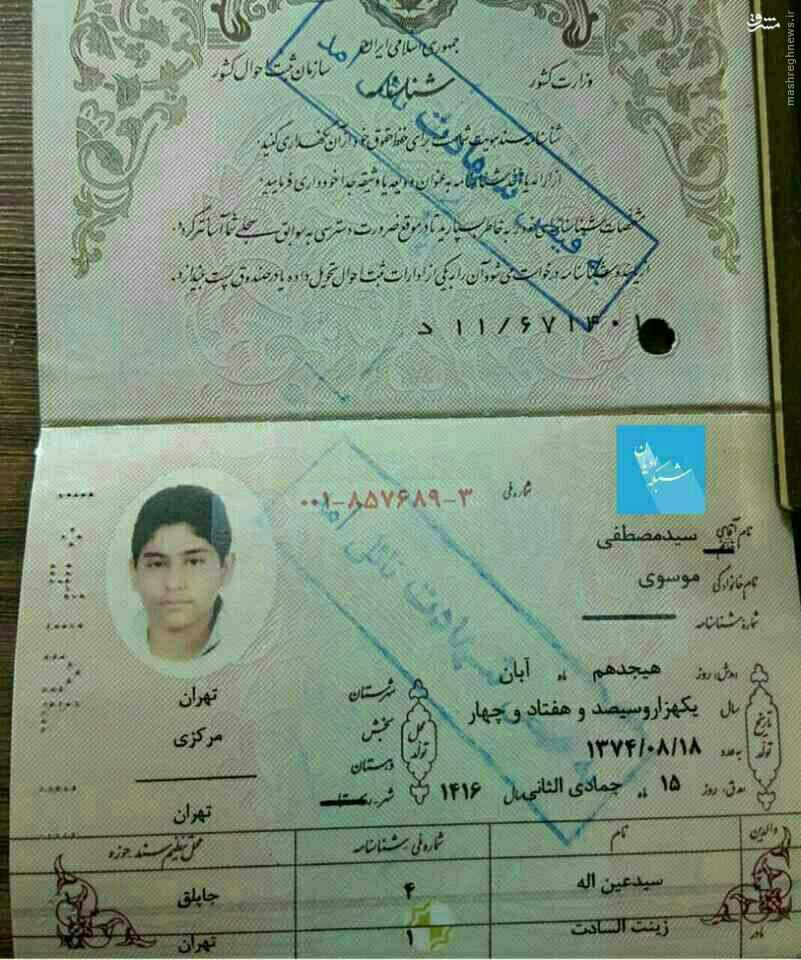 مشرق
mashreghnews.ir
جمهوری اسلامی ایران
وزارت کشور
سازمان ثبت احوال کشور
شناسنامه
شناسنامه سند هویت شماست برای حفظ حقوق خود از آن نگهداری کنید.
از ارائه یا قبول شناسنامه به عنوان ودیعه یا وثیقه جدا خودداری فرمایید.
مشخصات شناسنامه‌ای خود را به خاطر بسپارید تا در موقع ضرورت دسترسی به سوابق سجلی شما آسانتر گردد.
از یابنده شناسنامه درخواست می شود آن را به یکی از ادارات ثبت احوال تحویل داده یا در صندوق پست بیندازد.
د ۱۱/۶۷۱۴۰۱
به فیض شهادت نائل آمد
شماره ملی ۰۰۱-۸۵۷۶۸۹-۳
نام آقای سیدمصطفی
نام خانوادگی موسوی
شماره شناسنامه
به فیض شهادت نائل آمد
تاریخ تولد
روز هیجدهم ماه آبان
سال یکهزاروسیصد و هفتاد و چهار
به عدد ۱۳۷۴/۰۸/۱۸
روز ۱۵ ماه جمادی الثانی سال ۱۴۱۶
محل تولد
شهرستان تهران
بخش مرکزی
دهستان
شهر تهران
والدین نام شماره ملی شناسنامه محل تنظیم سند حوزه
سیدعین اله ۴ جاپلق
مادر زینت السادت ۱ تهران